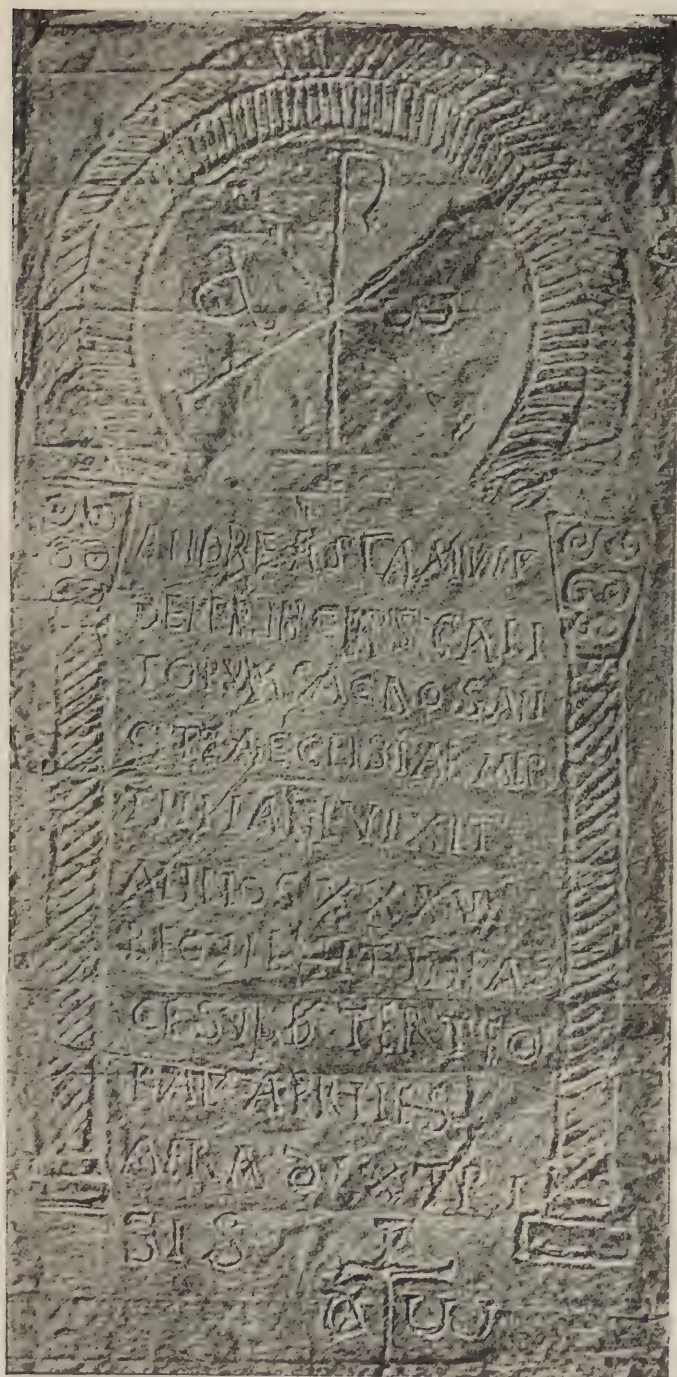 Α ω
ANDREAS FAMVLVS
DEI PRINCEPS CAN
TORVM SACROSAN
CTE AECLISIAE MER
TILLIANE VIXIT
ANNOS XXXVI
REQVIEVIT IN PA
CE SVB D TERTIO
KAL APRILES
AERA TRI
SIS
Α ω